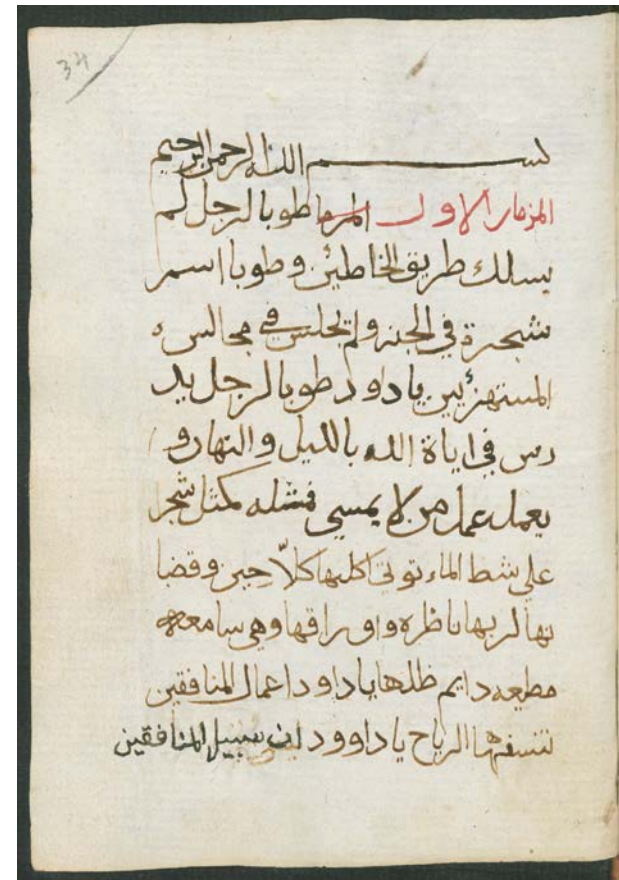 34
بســــــم الله الرحمن الرحيم
المزمار الاول المزما طوبا لرجل لم
يسلك طريق الخاطئين وطوبا اسم
شجرة في الجنه ولم يجلس في مجالس
المستهزئين يا داود طوبا لرجل يد
رس في اياة الله بالليل والنهار و
يعمل عمل من لا يمسي فمثله كمثل شجرا
علي شط الماء توتي اكلها كلاّ حين وقضا
نها لربها ناظره واوراقها وهي سامعه
مطيعه دايم ظلها يا داود اعمال المنافقين
تنسفها الرياح يا داوود ان سبيل المنافقين